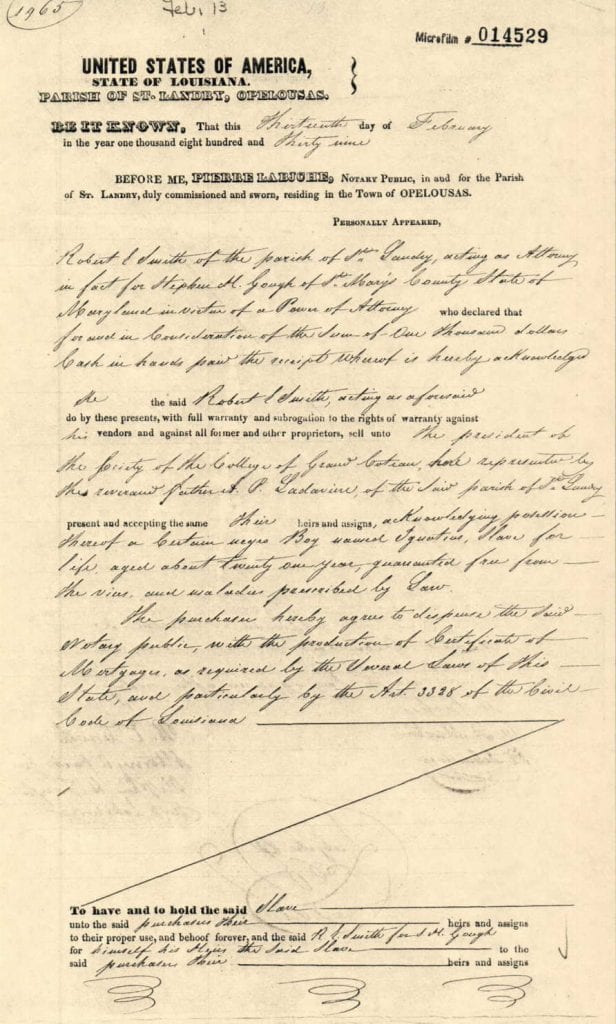 1965
Feb. 13
Microfilm # 014529
UNITED STATES OF AMERICA,
STATE OF LOUISIANA.
PARISH OF ST. LANDRY, OPELOUSAS.
BE IT KNOWN, That this Thirteenth day of February
in the year one thousand eight hundred and Thirty nine
BEFORE ME, PIERRE LABICHE, NOTARY PUBLIC, in and for the Parish
of ST. LANDRY, duly commissioned and sworn, residing in the Town of OPELOUSAS.
PERSONALLY APPEARED,
Robert E Smith of the parish of St. Landry, acting as Attorney
in fact for Stephen H. Gough of St Mary's County State of
Maryland in virtue of a Power of Attorney who declared that
for and in Consideration of the Sum of One Thousand dollars
Cash in hands paid the receipt whereof is hereby acknowledged
He the said Robert E Smith, acting as aforesaid
do by these presents, with full warranty and subrogation to the rights of warranty against
his vendors and against all former and other proprietors, sell unto the president of
the Society of the College of Grand Coteau, here represented by
the reverend father N. P. Ladaviere, of the Said parish of St. Landry
present and accepting the same their heirs and assigns, acknowledging possession
thereof a Certain negro Boy named Ignatius, Slave for
life, aged about twenty one year, guaranteed free from
the vices and maladies prescribed by Law.
The purchaser hereby agrees to dispense the Said
Notary public, with the production of Certificate of
Mortgages, as required by the Several Laws of this
State, and particularly by the Art 3328 of the Civil
Code of Louisiana
To have and to hold the said Slave
unto the said purchasers their heirs and assigns
to their proper use, and behoof forever, and the said R E Smith for S H. Gough
for himself his Heirs the Said Slave to the
said purchasers their heirs and assigns